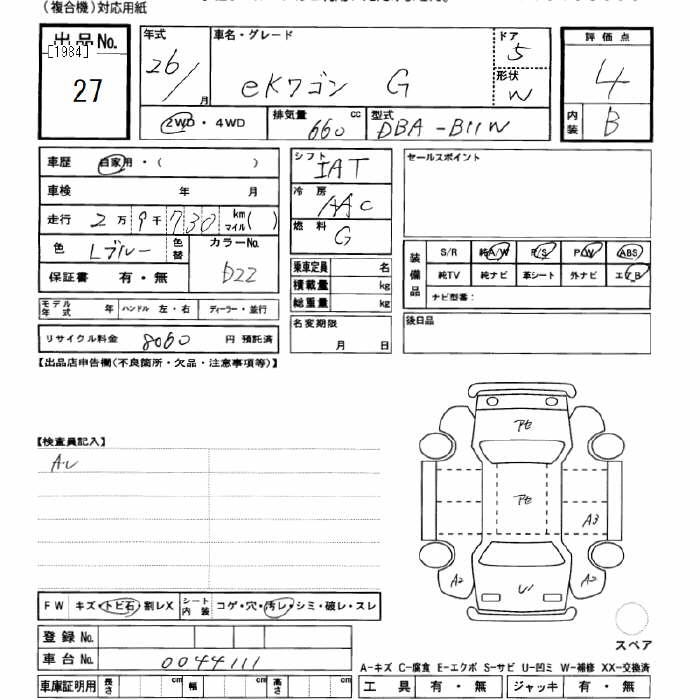 (複合機)対応用紙
出品No.
[1984]
27
年式 26 / 月
車名・グレード eKワゴン G
ドア 5
形状 W
2WD・4WD
排気量 660 cc
型式 DBA-B11W
評価点 4
内装 B
車歴 自家用・( )
車検 年 月
走行 2万9千730 km マイル( )
色 Lブルー 色替
カラーNo. D22
保証書 有・無
モデル年式 年 ハンドル 左・右 ディーラー・並行
リサイクル料金 8060 円 預託済
シフト IAT
冷房 AAC
燃料 G
乗車定員 名
積載量 kg
総重量 kg
名変期限 月 日
セールスポイント
装備品 S/R 純A/W P/S P/W ABS
純TV 純ナビ 革シート 外ナビ エアB
ナビ型番:
後日品
【出品店申告欄(不良箇所・欠品・注意事項等)】
【検査員記入】
A・U
A3
A2
A2
U
FW キズ・トビ石・割レX シート内装 コゲ・穴・汚レ・シミ・破レ・スレ
登録No.
車台No. 0044111
スペア
A-キズ C-腐食 E-エクボ S-サビ U-凹ミ W-補修 XX-交換済
車庫証明用 長さ cm 幅 cm 高さ cm
工具 有・無 ジャッキ 有・無